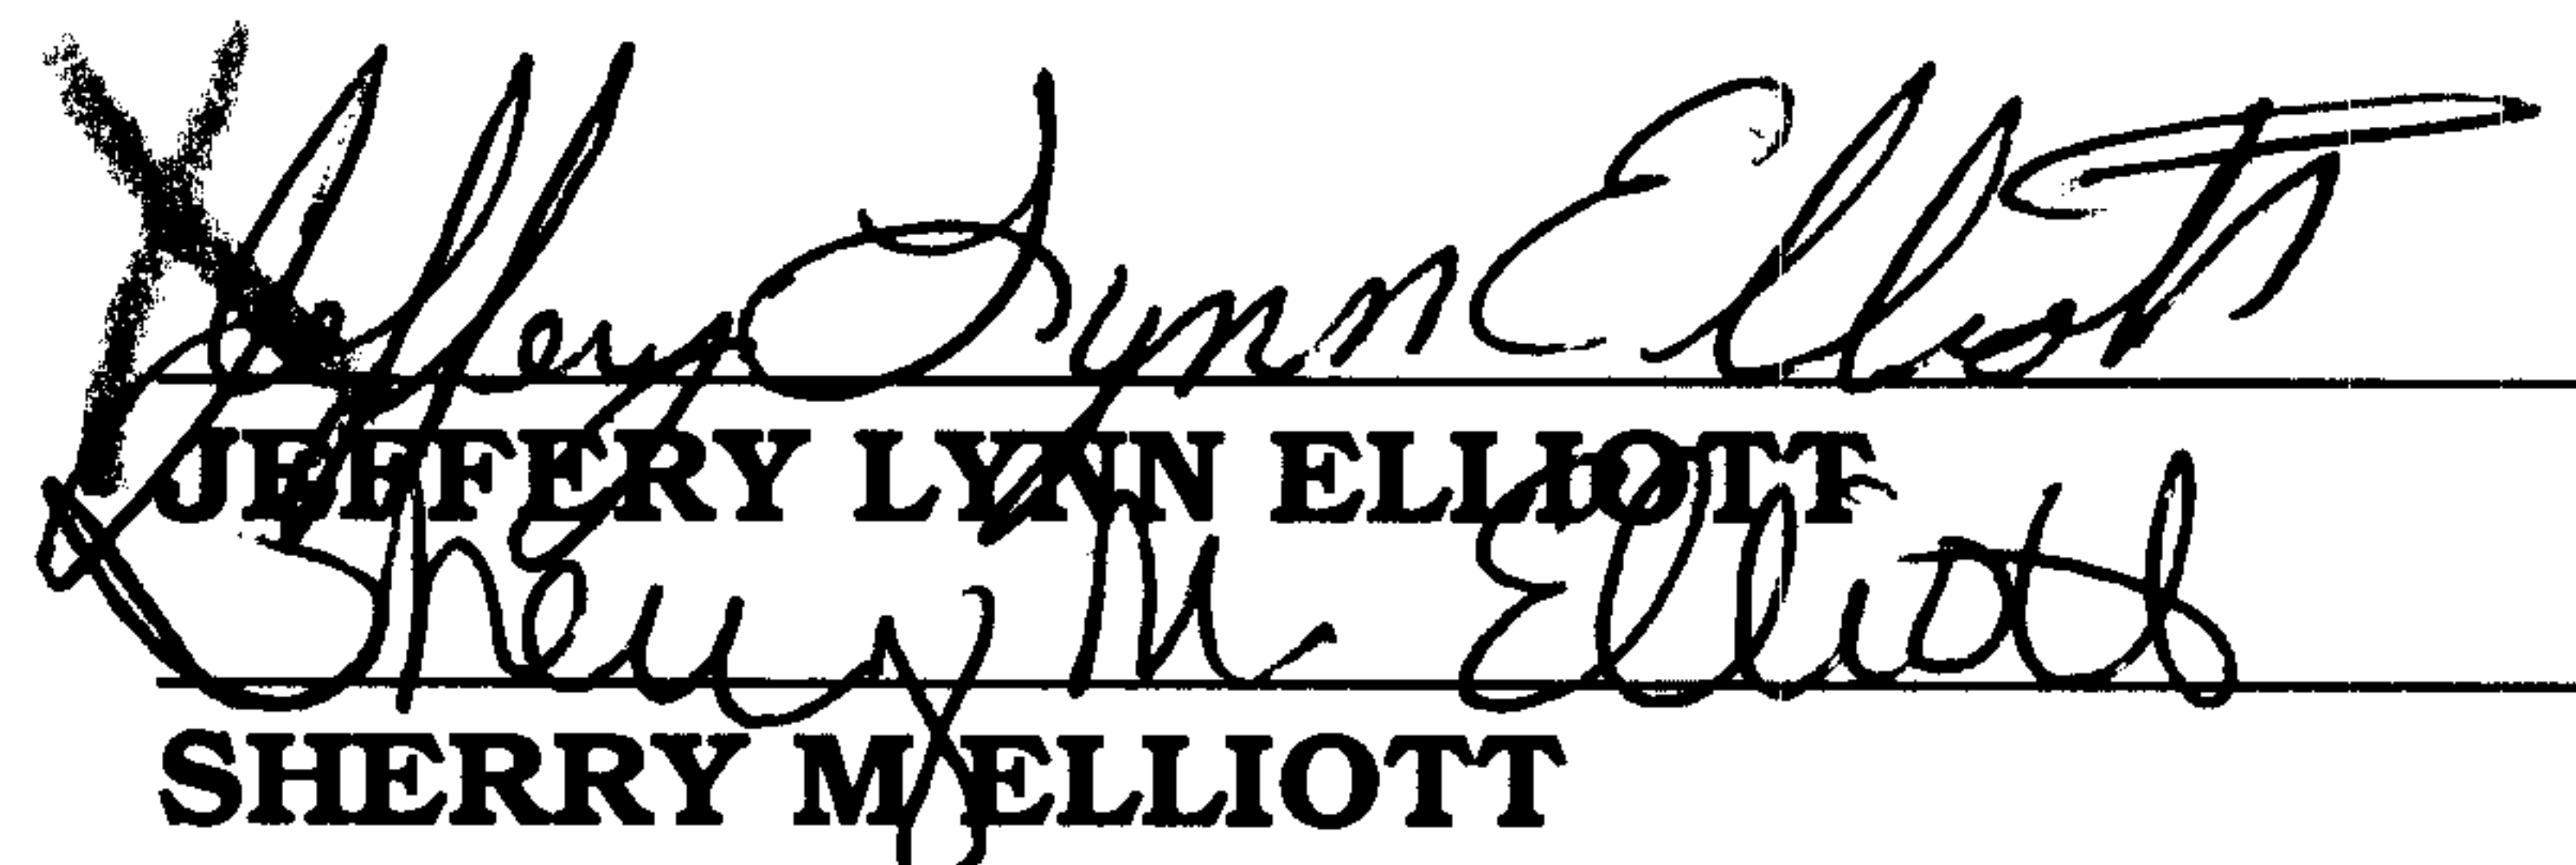 X Jeffery Lynn Elliott
JEFFERY LYNN ELLIOTT
Sherry M. Elliott
SHERRY M ELLIOTT